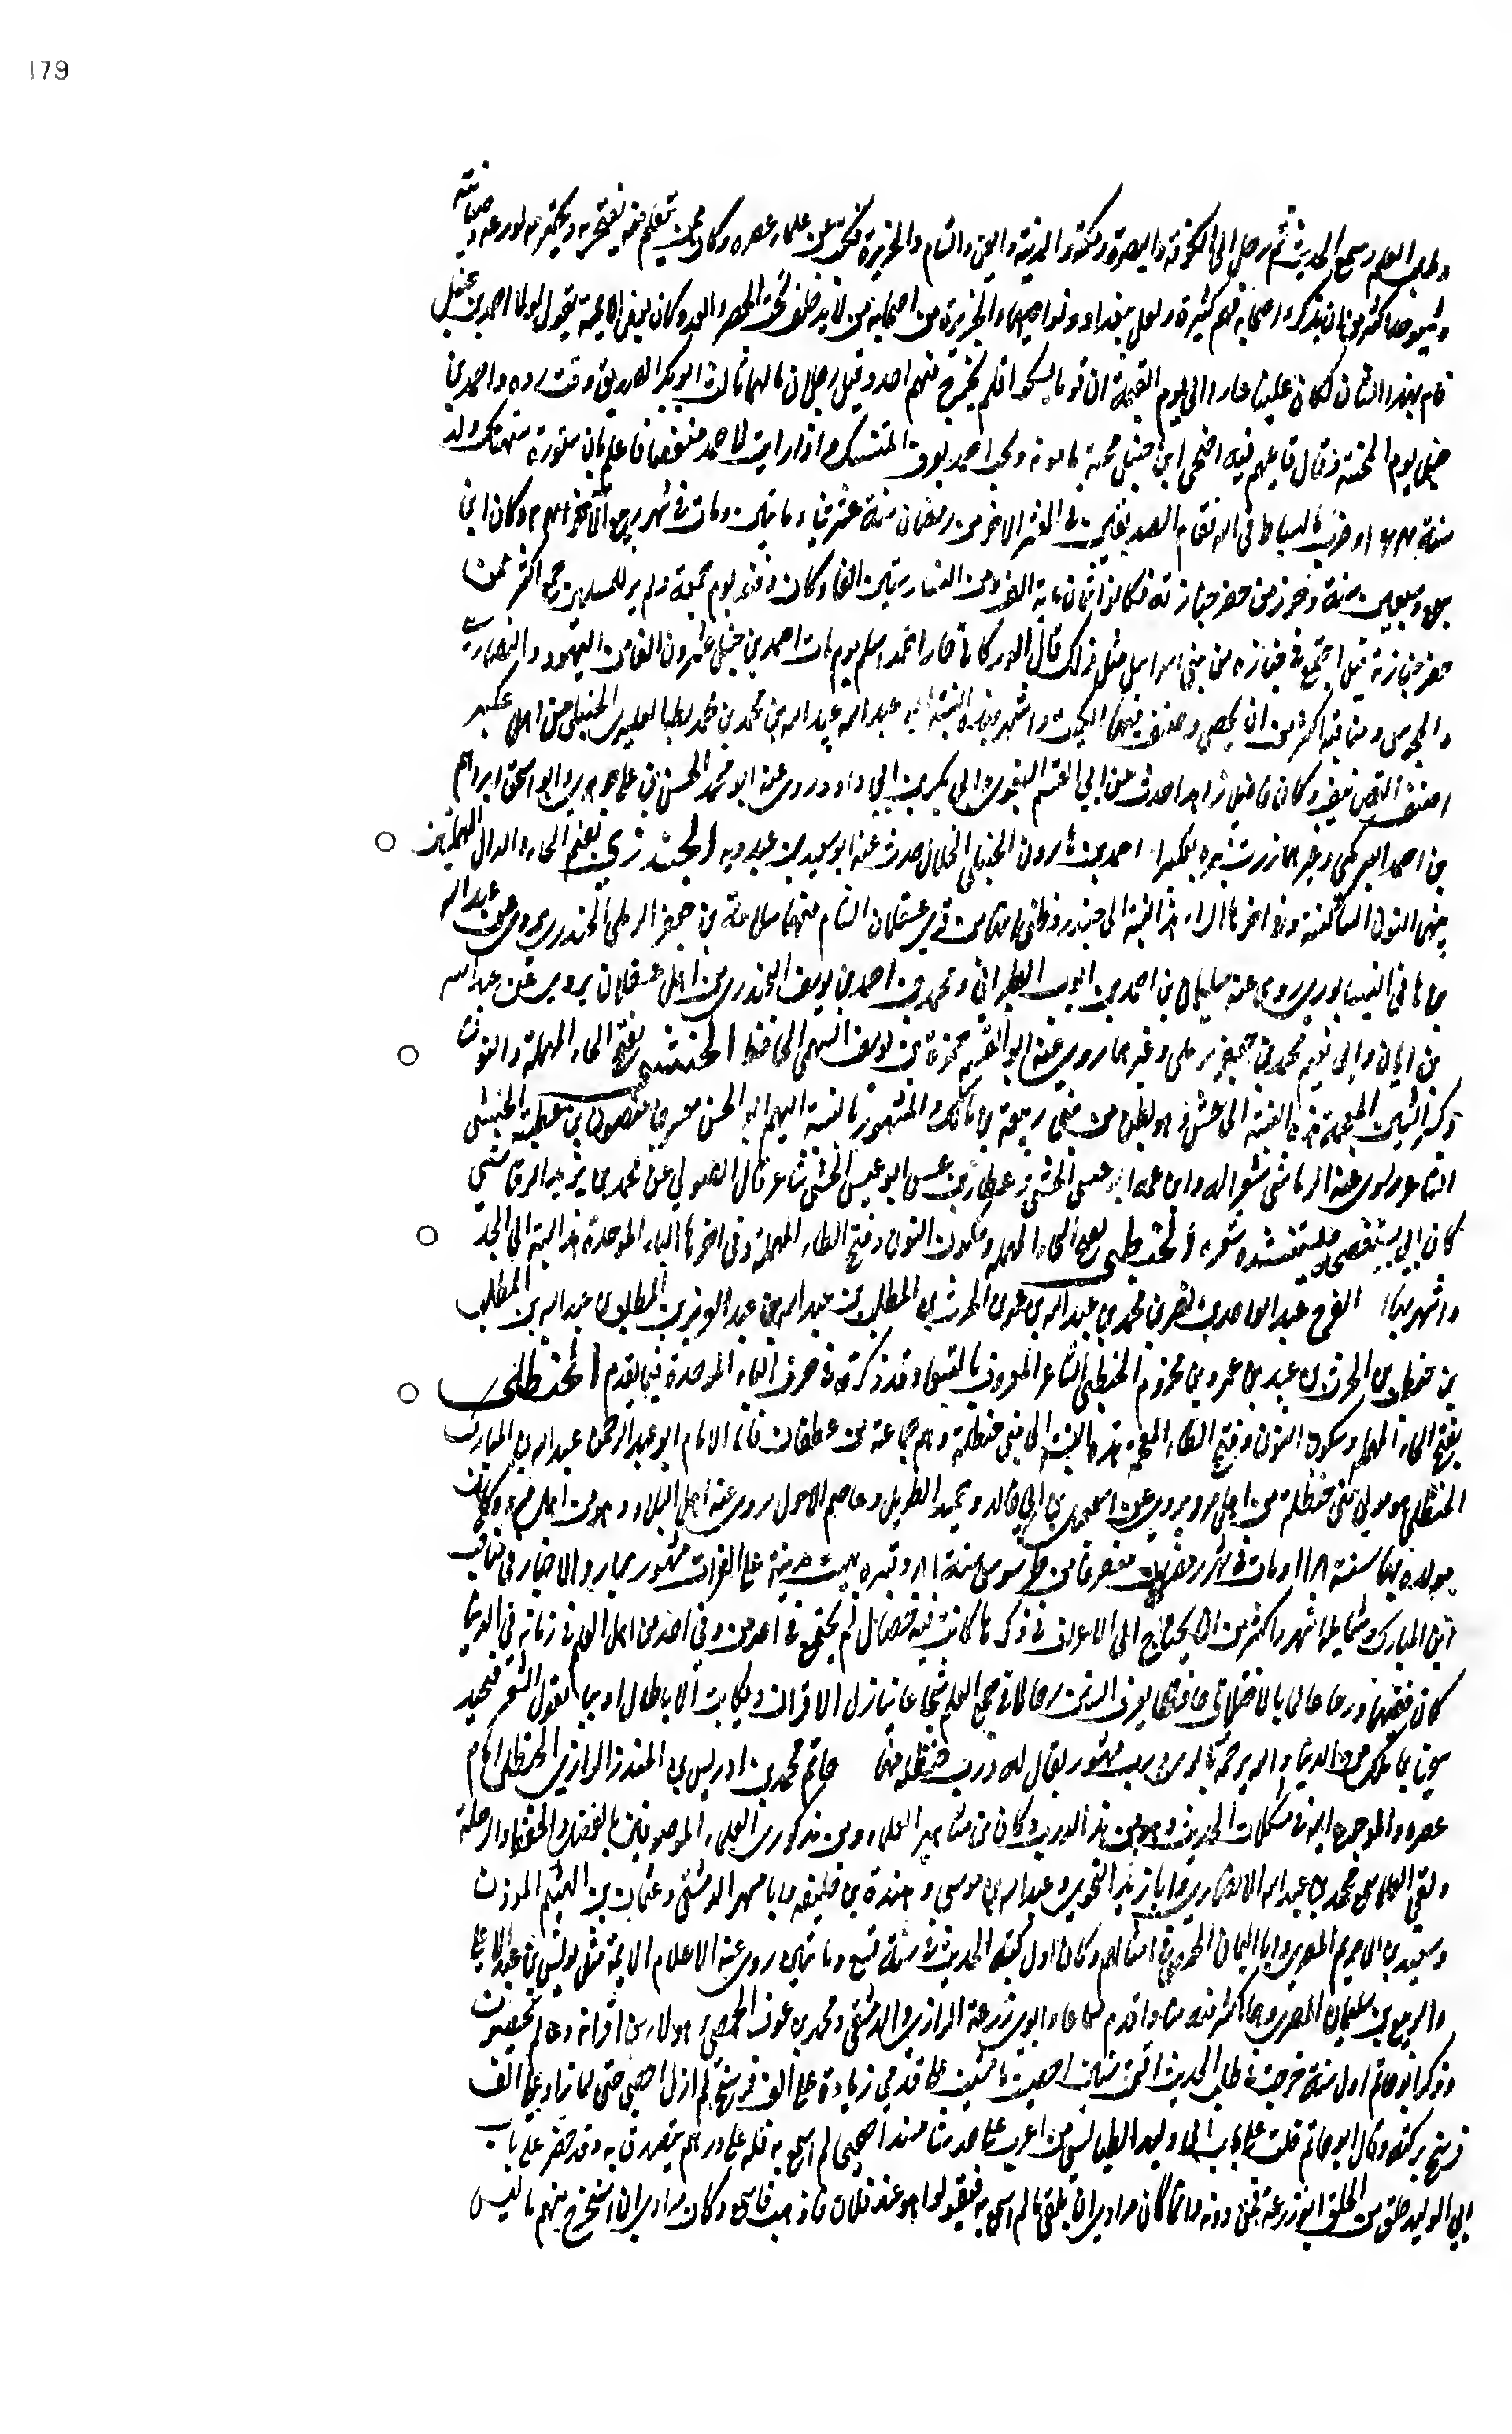 179
وطلب العلم وسمع الحديث ثم رحل الى الكوفة والبصرة ومكة والمدينة واليمن والشام والجزيرة فكتب عن علماء عصره وكان ممن
وشيوخه اكثر من ان يذكر واصحابه فيهم كثيرة ولعل ببغداد ونواحيها والجزيرة من اصحابه من لا يدخل تحت الحصر والعد وكان بعض الايمة يقول لولا احمد بن حنبل
قام بهذا الشان لكان علينا عارا الى يوم القيمة ان قوما سبكوا فلم يخرج منهم احد وقيل رجلان ما لهما ثالث ابو بكر الصديق وقت ردة واحمد بن
حنبل يوم المحنة وقال قايلهم فيه اضحى ابن حنبل محنة مامونة وبحب احمد يعرف المتنسك واذا رايت لاحمد متنقصا فاعلم بان ستوره ستهتك ولد
سنة ١٦٤ وضرب بالسياط في الله فقام مقام الصديقين في العشر الاخر من رمضان سنة عشرين ومايتين ومات في شهر ربيع الاخر ٢٤١ وكان ابن
سبع وسبعين سنة وحزر من حضر جنازته فكانوا ثمان ماية الف ومن النساء ستين الفا وكان دفنه يوم جمعة ولم ير للمسلمين جمع اكثر ممن
حضر جنازته قيل اجتمع في جنازه من بني اسرائيل مثل ذلك قال الوركاني جار احمد اسلم يوم مات احمد بن حنبل عشرون الفا من اليهود والنصارى
والمجوس ومناقبه اكثر من ان يحصى وصنف فيها الكتب واشتهر بهذه النسبة ابو عبد الله عبيد الله بن محمد بن محمد بن بطة العكبري الحنبلي من اهل عكبر
صنف التصانيف وكان فاضلا زاهدا حدث عن ابي القسم البغوي وابي بكر بن ابي داود روى عنه ابو محمد الحسن بن علي الجوهري وابو اسحق ابراهيم
بن احمد البرمكي وغيرهما زرت قبره بعكبرا احمد بن هارون الحنبلي الخلال حدث عنه ابو سعيد بن عبدويه الحندري بضم الحاء والدال المهملتين
بينهما النون الساكنة وفي اخرها الراء هذه النسبة الى حندر وظني انها من قرى عسقلان الشام منها سلامة بن جعفر الرملي الحندري يروي عن عبد الله
بن هانئ النيسابوري روى عنه سليمان بن احمد بن ايوب الطبراني ومحمد بن احمد بن يوسف الحندري من اهل عسقلان يروي عن عبد الله
بن ابان وابي نعيم محمد بن جعفر الرملي وغيرهما روى عنه ابو القسم حمزة بن يوسف السهمي الحافظ الحنشي بفتح الحاء المهملة والنون
وكسر الشين المعجمة هذه النسبة الى حنش وهو بطن من بني ربيعة بن مالك والمشهور بالنسبة اليهم ابو الحسن معسر بن منصور بن عطية الحنشي
الشاعر روى عنه الرياشي شعرا له وابن عمه ابو عيسى الحنشي وعطارد بن عيسى ابو عيسى الحنشي شاعر قال الصولي عن محمد بن يزيد الرقاشي
كان ابي يستقصي ويستنشده شعره الحنطبي بفتح الحاء المهملة وسكون النون وفتح الطاء المهملة وفي اخرها الباء الموحدة هذه النسبة الى الجد
واشتهر بها ابو الفرج عبد الواحد بن نصر بن محمد بن عبد الله بن عمر بن الحرث بن المطلب بن عبد الله بن عبد العزيز بن المطلب بن عبد الله بن المطلب
بن حنطب بن الحرث بن عبيد بن عمرو بن مخزوم الحنطبي الشاعر المعروف بالببغا وقد ذكرته في حرف الباء الموحدة فيما يقدم الحنظلي
بفتح الحاء المهملة وسكون النون وفتح الظاء المعجمة هذه النسبة الى بني حنظلة وهم جماعة من غطفان فاما الامام ابو عبد الرحمن عبد الله بن المبارك
الحنظلي هو مولى بني حنظلة من اهل مرو يروي عن اسمعيل بن ابي خالد وحميد الطويل وعاصم الاحول روى عنه اهل البلاد وهو من اهل مرو وكان
مولده بها سنة ١١٨ ومات في شهر رمضان منصرفا من طرسوس سنة ١٨١ وقبره بهيت مدينة على الفرات مشهور يزار والاخبار في مناقب
ابن المبارك وشمايله اشهر واكثر من ان يحتاج الى الاغراق في ذكرها كانت فيه خصال لم يجتمع في احد من اهل العلم في زمانه في الدنيا
كان فقيها ورعا عالما بالاختلاف حافظا يعرف السنن رحالا في جمع العلم شجاعا ينازل الاقران ويكابت الابطال اديبا يقول الشعر فيجيد
سخيا بما ملك من الدنيا والله يرحمه بالري درب مشهور يقال له درب حنظلة منها ابو حاتم محمد بن ادريس بن المنذر الرازي الحنظلي امام
عصره والمرجوع اليه في مشكلات الحديث وهو من هذا الدرب وكان من مشاهير العلماء ومن مذكوري العلماء الموصوفين بالفضل والحفظ والرحلة
ولقي العلماء سمع محمد بن عبد الله الانصاري وابا زيد النحوي وعبيد الله بن موسى وهوذة بن خليفة وابا مسهر الدمشقي وعثمان بن الهيثم الموذن
وسعيد بن ابي مريم المصري وابا اليمان الحمصي في امثالهم وكان اول كتبه الحديث في سنة تسع ومايتين روى عنه الاعلام الايمة مثل يونس بن عبد الاعلى
والربيع بن سليمان المصري وهما اكبر منه سنا واقدم سماعا وابو زرعة الرازي والدمشقي ومحمد بن عوف الحمصي وهولاء من اقرانه وعالم لا يحصون
وذكر ابو حاتم اول سنة خرجت في طلب الحديث اقمت سنين احصيت ما مشيت على قدمي زيادة على الف فرسخ لم ازل احصي حتى لما زاد على الف
فرسخ تركته وقال ابو حاتم قلت على باب ابي وليد الطيالسي من اغرب علي حديثا مسندا صحيحا لم اسمع به فله علي درهم يتصدق به وقد حضر على باب
ابي الوليد خلق من الخلق ابو زرعة فمن دونه وانما كان مرادي ان يلقى ما لم اسمع به فيقولوا هو عند فلان فاذهب فاسمع وكان مرادي ان استخرج منهم ما ليس